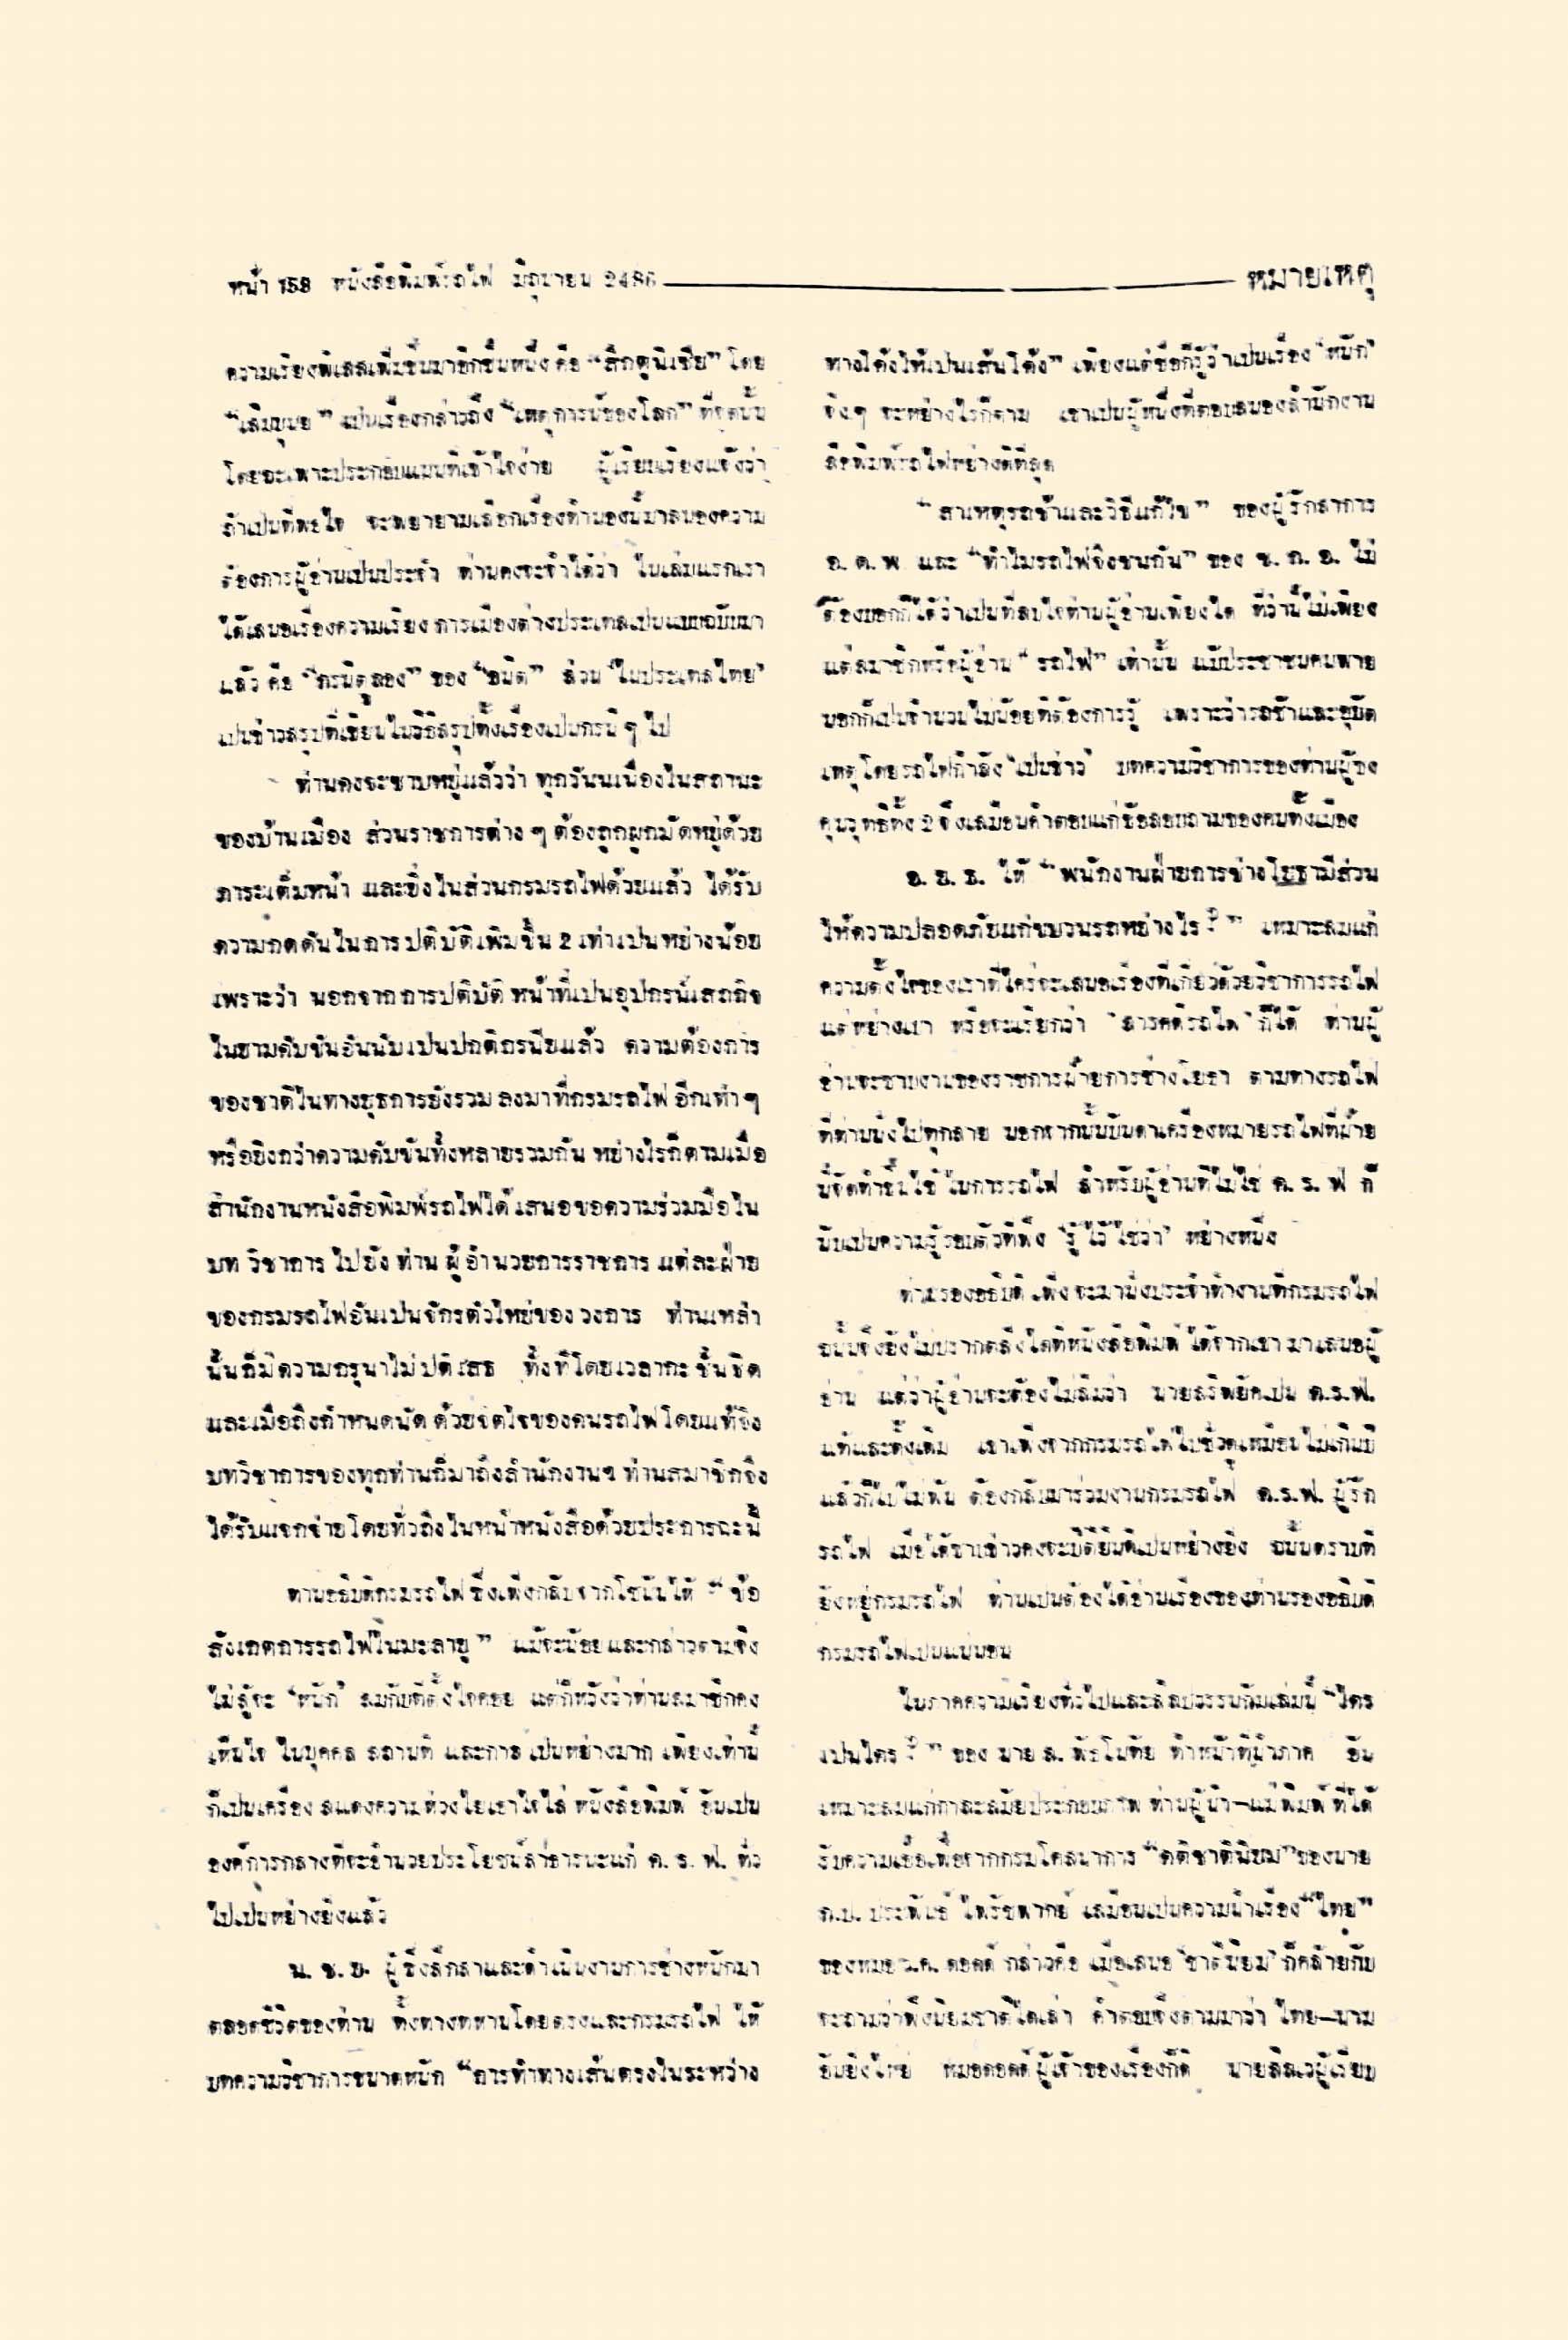 หน้า 158 หนังสือพิมพ์รถไฟ มิถุนายน 2486
หมายเหตุ
ความเรียงพิเสสเพิ่มขึ้นมาอีกชิ้นหนึ่ง คือ “สิกตูนิเซีย” โดย
เปนเรื่องกล่าวถึง “เหตุการน์ของโลก” ที่จุดนั้น
โดยฉะเพาะประกอบแผนที่เข้าใจง่าย ผู้เรียบเรียงแจ้งว่า
ถ้าเปนที่พอใจ จะพยายามเลือกเรื่องทำนองนี้มาสนองความ
ต้องการผู้อ่านเปนประจำ ท่านคงจะจำได้ว่า ในเล่มแรกเรา
ได้เสนอเรื่องความเรียง การเมืองต่างประเทสเปนแบบฉบับมา
แล้ว คือ ของ ส่วน “ในประเทสไทย”
เปนข่าวสรุปที่เขียนในวิธีสรุปทั้งเรื่องเปนกรนี ๆ ไป
ท่านคงจะซาบหยู่แล้วว่า ทุกวันนี้เนื่องในสถานะ
ของบ้านเมือง ส่วนราชการต่าง ๆ ต้องถูกผูกมัดหยู่ด้วย
ภาระเต็มหน้า และยิ่งในส่วนกรมรถไฟด้วยแล้ว ได้รับ
ความกดดันในการปติบัติเพิ่มขึ้น 2 เท่าเปนหย่างน้อย
เพราะว่า นอกจากการปติบัติ หน้าที่เปนอุปกรน์เสถกิจ
ในยามคับขันอันนับเปนปกติกรนียแล้ว ความต้องการ
ของชาติในทางยุธการยังรวม ลงมาที่กรมรถไฟ อีกเท่า ๆ
หรือยิ่งกว่าความคับขันทั้งหลายรวมกัน หย่างไรก็ตามเมื่อ
สำนักงานหนังสือพิมพ์รถไฟได้ เสนอขอความร่วมมือใน
บท วิชาการ ไปยัง ท่าน ผู้ อำนวยการราชการ แต่ละฝ่าย
ของกรมรถไฟอันเปนจักรตัวใหย่ของ วงการ ท่านเหล่า
นั้นก็มีความกรุนาไม่ปติเสธ ทั้งที่โดยเวลากะชั้นชิด
และเมื่อถึงกำหนดนัด ด้วยจิตใจของคนรถไฟโดยแท้จิง
บทวิชาการของทุกท่านก็มาถึงสำนักงานฯ ท่านสมาชิกจึง
ได้รับแจกจ่ายโดยทั่วถึงในหน้าหนังสือด้วยประการฉะนี้
ท่านอธิบดีกรมรถไฟ ซึ่งเพิ่งกลับจากโชนันได้ “ข้อ
สังเกตการรถไฟในมะลายู” แม้จะน้อยและกล่าวตามจิง
ไม่สู้จะ ‘หนัก’ สมกับที่ตั้งใจคอย แต่ก็หวังว่าท่านสมาชิกคง
เห็นใจ ในบุคคล สถานที่ และกาล เปนหย่างมาก เพียงเท่านี้
ก็เปนเครื่อง สแดงความ ห่วงใยเอาใจใส่ หนังสือพิมพ์ อันเปน
องค์การกลางที่จะอำนวยประโยชน์สาธารนะแก่ ค. ร. ฟ. ทั่ว
ไปเปนหย่างยิ่งแล้ว
น. ช. อ. ผู้ซึ่งสึกสาและดำเนินงานการช่างหนักมา
ตลอดชีวิตของท่าน ทั้งทางทหานโดยตรงและกรมรถไฟ ให้
บทความวิชาการขนาดหนัก “การทำทางเส้นตรงในระหว่าง
ทางโค้งให้เปนเส้นโค้ง” เพียงแต่ชื่อก็รู้ว่าเปนเรื่อง ‘หนัก’
จิงๆ จะหย่างไรก็ตาม เขาเปนผู้หนึ่งที่ตอบสนองสำนักงาน
สือพิมพ์รถไฟหย่างดีที่สุด
“สาเหตุรถช้าและวิธีแก้ไข” ของผู้รักสาการ
อ. ด. พ. และ “ทำไมรถไฟจึงชนกัน” ของ ช. ก. อ. ไม่
ต้องบอกก็ได้ว่าเปนที่สนใจท่านผู้อ่านเพียงใด ที่ว่านี้ไม่เพียง
แต่สมาชิกหรือผู้อ่าน “รถไฟ” เท่านั้น แม้ประชาชนคนภาย
นอกก็เปนจำนวนไม่น้อยที่ต้องการรู้ เพราะว่ารถช้าและอุบัต
เหตุโดยรถไฟกำลัง ‘เปนข่าว’ บทความวิชาการของท่านผู้ซง
คุนวุทธิทั้ง 2 จึงเสมือนคำตอบแก่ข้อสอบถามของคนทั้งเมือง
อ. ย. ธ. ให้ “พนักงานฝ่ายการช่างโยธามีส่วน
ให้ความปลอดภัยแก่ขบวนรถหย่างไร ?” เหมาะสมแก่
ความตั้งใจของเราที่ใคร่จะเสนอเรื่องที่เกี่ยวด้วยวิชาการรถไฟ
แต่หย่างเบา หรือจะเรียกว่า ‘สารคดีรถไฟ’ ก็ได้ ท่านผู้
อ่านจะซาบงานของราชการฝ่ายการช่างโยธา ตามทางรถไฟ
ที่ท่านนั่งไปทุกสาย นอกจากนั้นบันดาเครื่องหมายรถไฟที่ฝ่าย
นี้จัดทำขึ้นใช้ในการรถไฟ สำหรับผู้อ่านที่ไม่ใช่ ค. ร. ฟ. ก็
นับเปนความรู้รอบตัวที่พึง ‘รู้ไว้ใช่ว่า’ หย่างหนึ่ง
ท่านรองอธิบดี เพิ่งจะมานั่งประจำทำงานที่กรมรถไฟ
ฉะนั้นจึงยังไม่ปรากตสิ่งใดที่หนังสือพิมพ์ ได้จากเขา มาเสนอผู้
อ่าน แต่ว่าผู้อ่านจะต้องไม่ลืมว่า ค.ร.ฟ.
แท้และดั้งเดิม เขาเพิ่งจากกรมรถไฟไปชั่วดูเหมือนไม่เกินปี
แล้วก็ไปไม่พ้น ต้องกลับมาร่วมงานกรมรถไฟ ค.ร.ฟ. ผู้รัก
รถไฟ เมื่อได้ซาบข่าวคงจะปีติยินดีเปนหย่างยิ่ง ฉะนั้นตราบที่
ยังหยู่กรมรถไฟ ท่านเปนต้องได้อ่านเรื่องของท่านรองอธิบดี
กรมรถไฟเปนแน่นอน
ในภาคความเรียงทั่วไปและสิลปวรรนกัมเล่มนี้ “ใคร
เปนใคร ?” ของ นาย ส. ทำหน้าที่นำภาค อัน
เหมาะสมแก่กาละสมัยประกอบภาพ ท่านผู้นำ—แม่พิมพ์ ที่ได้
รับความเอื้อเฟื้อจากกรมโคสนาการ “คติชาตินิยม” ของนาย
เสมือนเปนความนำเรื่อง “ไทย”
ของหมอ ดอดด์ กล่าวคือ เมื่อเสนอ ‘ชาตินิยม’ ก็คล้ายกับ
จะถามว่าพึงนิยมชาติใดเล่า คำตอบจึงตามมาว่า ไทย—นาม
อันยิ่งใหย่ หมอดอดด์ผู้เจ้าของเรื่องก็ดี ผู้เรียบ